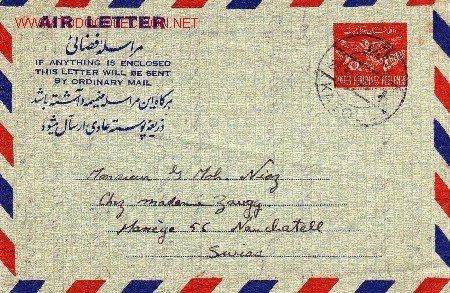 www.todocoleccion.net
AIR LETTER
مراسله فضائی
IF ANYTHING IS ENCLOSED
THIS LETTER WILL BE SENT
BY ORDINARY MAIL
هرگاه باین مراسله ضمیمه داشته باشد
ذریعهٔ پوسته عادی ارسال میشود
Monsieur G Moh. Niaz
Chez madame Zaugg
Manège 56 Neuchatell
Swiss